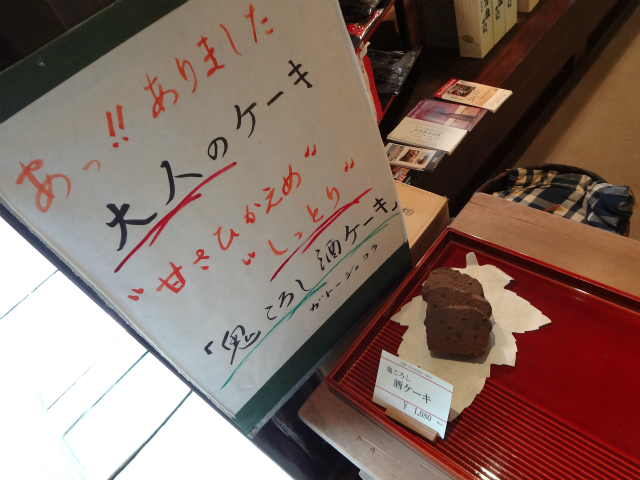 あっ!! ありました
大人のケーキ
"甘さひかえめ"
"しっとり"
「鬼ころし 酒ケーキ」
ガトーショコラ
鬼ころし
酒ケーキ
¥1,080